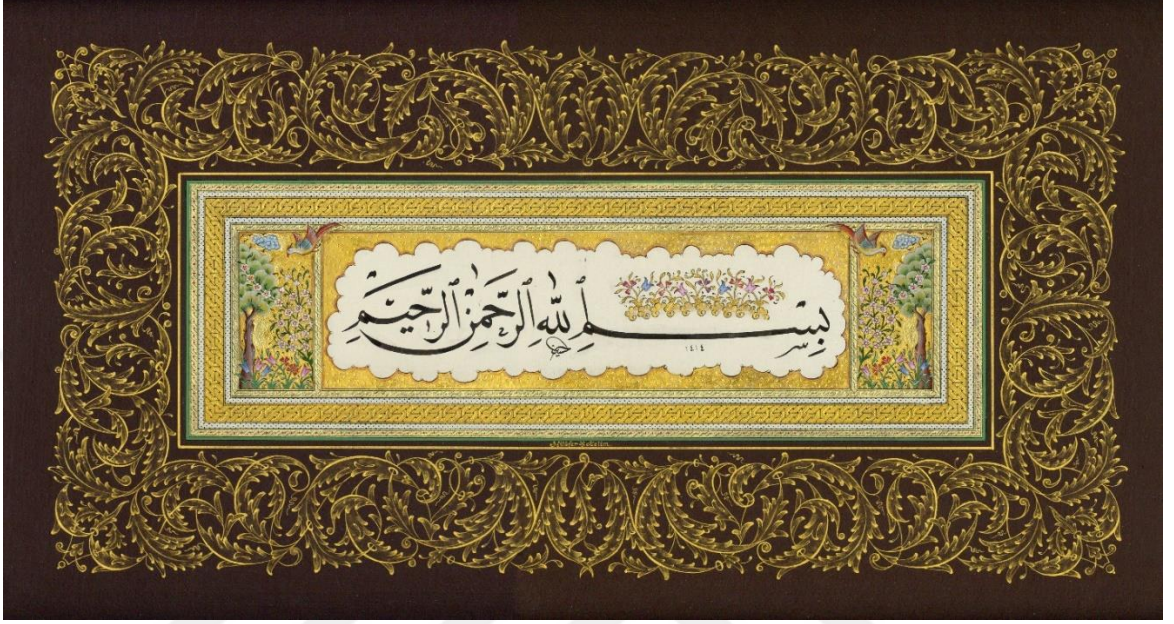 بِسْمِ ٱللّٰهِ ٱلرَّحْمٰنِ ٱلرَّحِيْمِ
١٤١٤